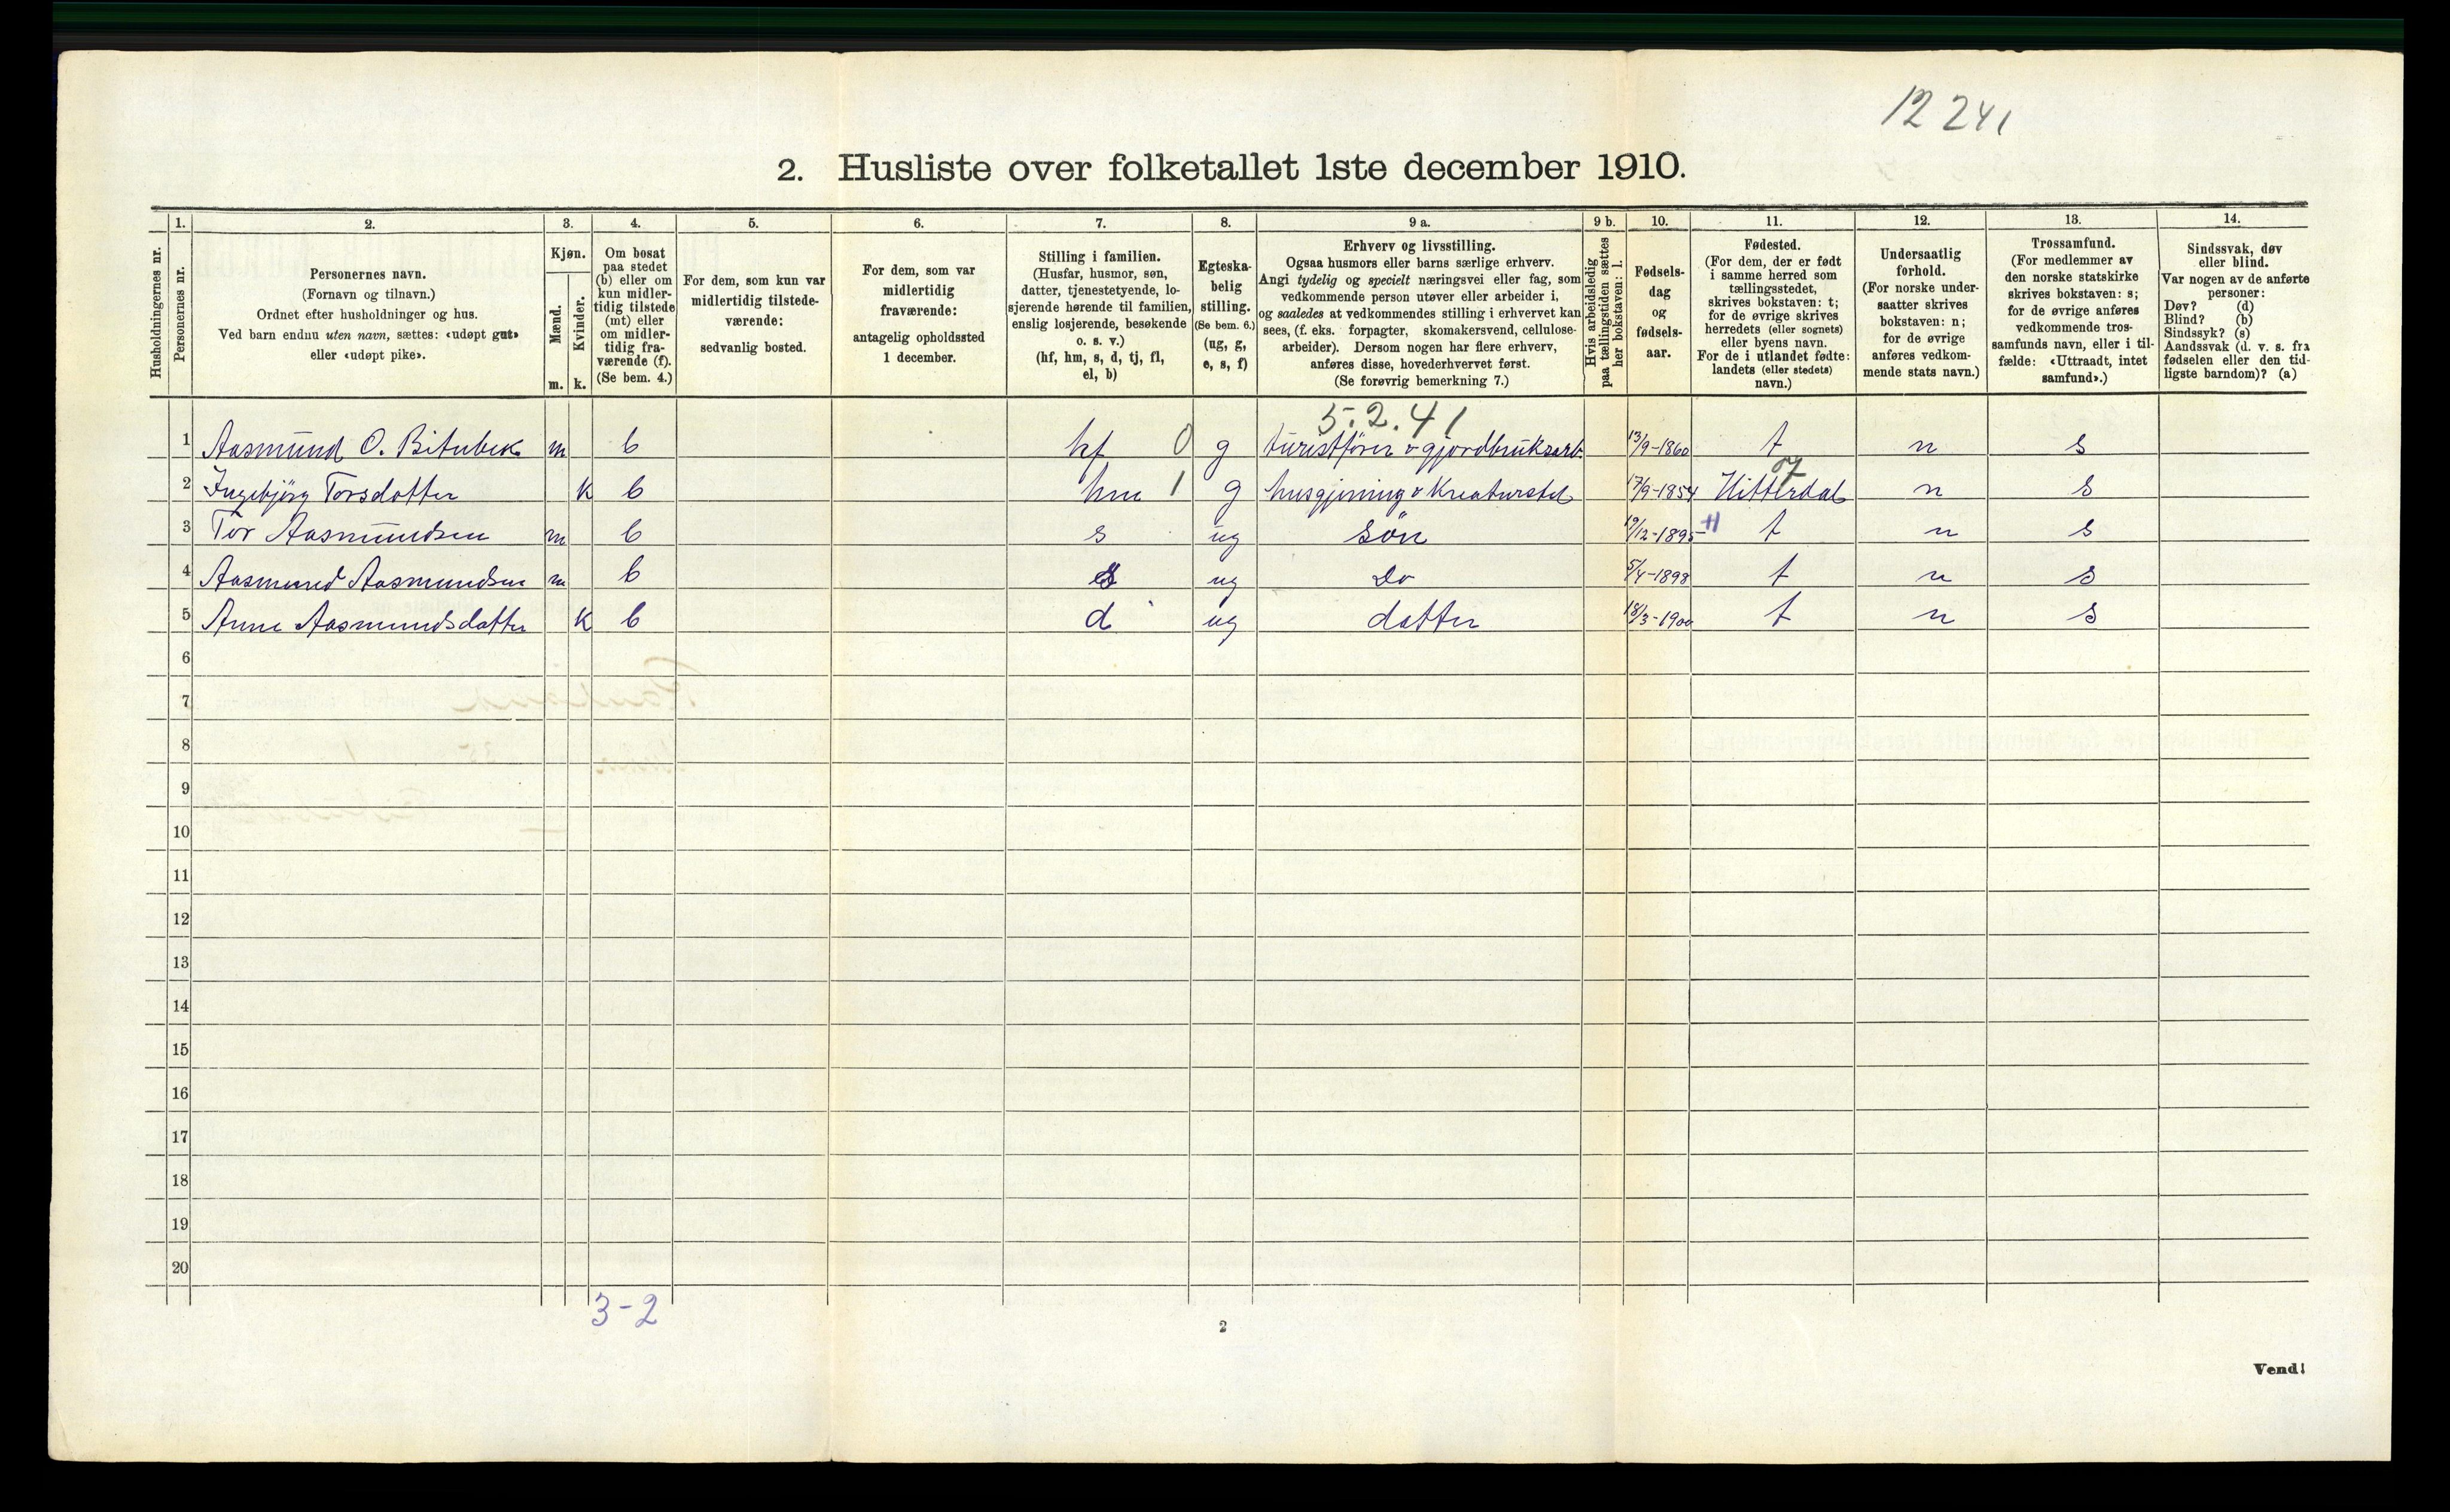 12 241
2. Husliste over folketallet 1ste december 1910.
Husholdningernes nr.
1.
Personernes nr.
2.
Personernes navn.
(Fornavn og tilnavn.)
Ordnet efter husholdninger og hus.
Ved barn endnu uten navn, sættes: «udøpt gut»
eller «udøpt pike».
3.
Kjøn.
Mænd.
m.
Kvinder.
k.
4.
Om bosat
paa stedet
(b) eller om
kun midler-
tidig tilstede
(mt) eller
om midler-
tidig fra-
værende (f).
(Se bem. 4.)
5.
For dem, som kun var
midlertidig tilstede-
værende:
sedvanlig bosted.
6.
For dem, som var
midlertidig
fraværende:
antagelig opholdssted
1 december.
7.
Stilling i familien.
(Husfar, husmor, søn,
datter, tjenestetyende, lo-
sjerende hørende til familien,
enslig losjerende, besøkende
o. s. v.)
(hf, hm, s, d, tj, fl,
el, b)
8.
Egteska-
belig
stilling.
(Se bem. 6.)
(ug, g,
e, s, f)
9 a.
Erhverv og livsstilling.
Ogsaa husmors eller barns særlige erhverv.
Angi tydelig og specielt næringsvei eller fag, som
vedkommende person utøver eller arbeider i,
og saaledes at vedkommendes stilling i erhvervet kan
sees, (f. eks. forpagter, skomakersvend, cellulose-
arbeider). Dersom nogen har flere erhverv,
anføres disse, hovederhvervet først.
(Se forøvrig bemerkning 7.)
9 b.
Hvis arbeidsledig
paa tællingstiden sættes
her bokstaven: l.
10.
Fødsels-
dag
og
fødsels-
aar.
11.
Fødested.
(For dem, der er født
i samme herred som
tællingsstedet,
skrives bokstaven: t;
for de øvrige skrives
herredets (eller sognets)
eller byens navn.
For de i utlandet fødte:
landets (eller stedets)
navn.)
12.
Undersaatlig
forhold.
(For norske under-
saatter skrives
bokstaven: n;
for de øvrige
anføres vedkom-
mende stats navn.)
13.
Trossamfund.
(For medlemmer av
den norske statskirke
skrives bokstaven: s;
for de øvrige anføres
vedkommende tros-
samfunds navn, eller i til-
fælde: «Uttraadt, intet
samfund».)
14.
Sindssvak, døv
eller blind.
Var nogen av de anførte
personer:
Døv? (d)
Blind? (b)
Sindssyk? (s)
Aandssvak (d. v. s. fra
fødselen eller den tid-
ligste barndom)? (a)
5.2.41
1 Aasmund O. Bitubek m b hf 0 g turistfører & gjordbruksarb. 13/9-1860 t n s
07
2 Ingebjörg Torsdatter k b hm 1 g husgjerning & Kreaturstel 17/9-1854 Hitterdal n s
3 Tor Aasmundsen m b s ug sön 19/12-1895 t n s
4 Aasmund Aasmundsen m b s ug Do 5/4-1898 t n s
5 Anne Aasmundsdatter k b d ug datter 18/3-1900 t n s
6
7
8
9
10
11
12
13
14
15
16
17
18
19
20
3-2
2
Vend!